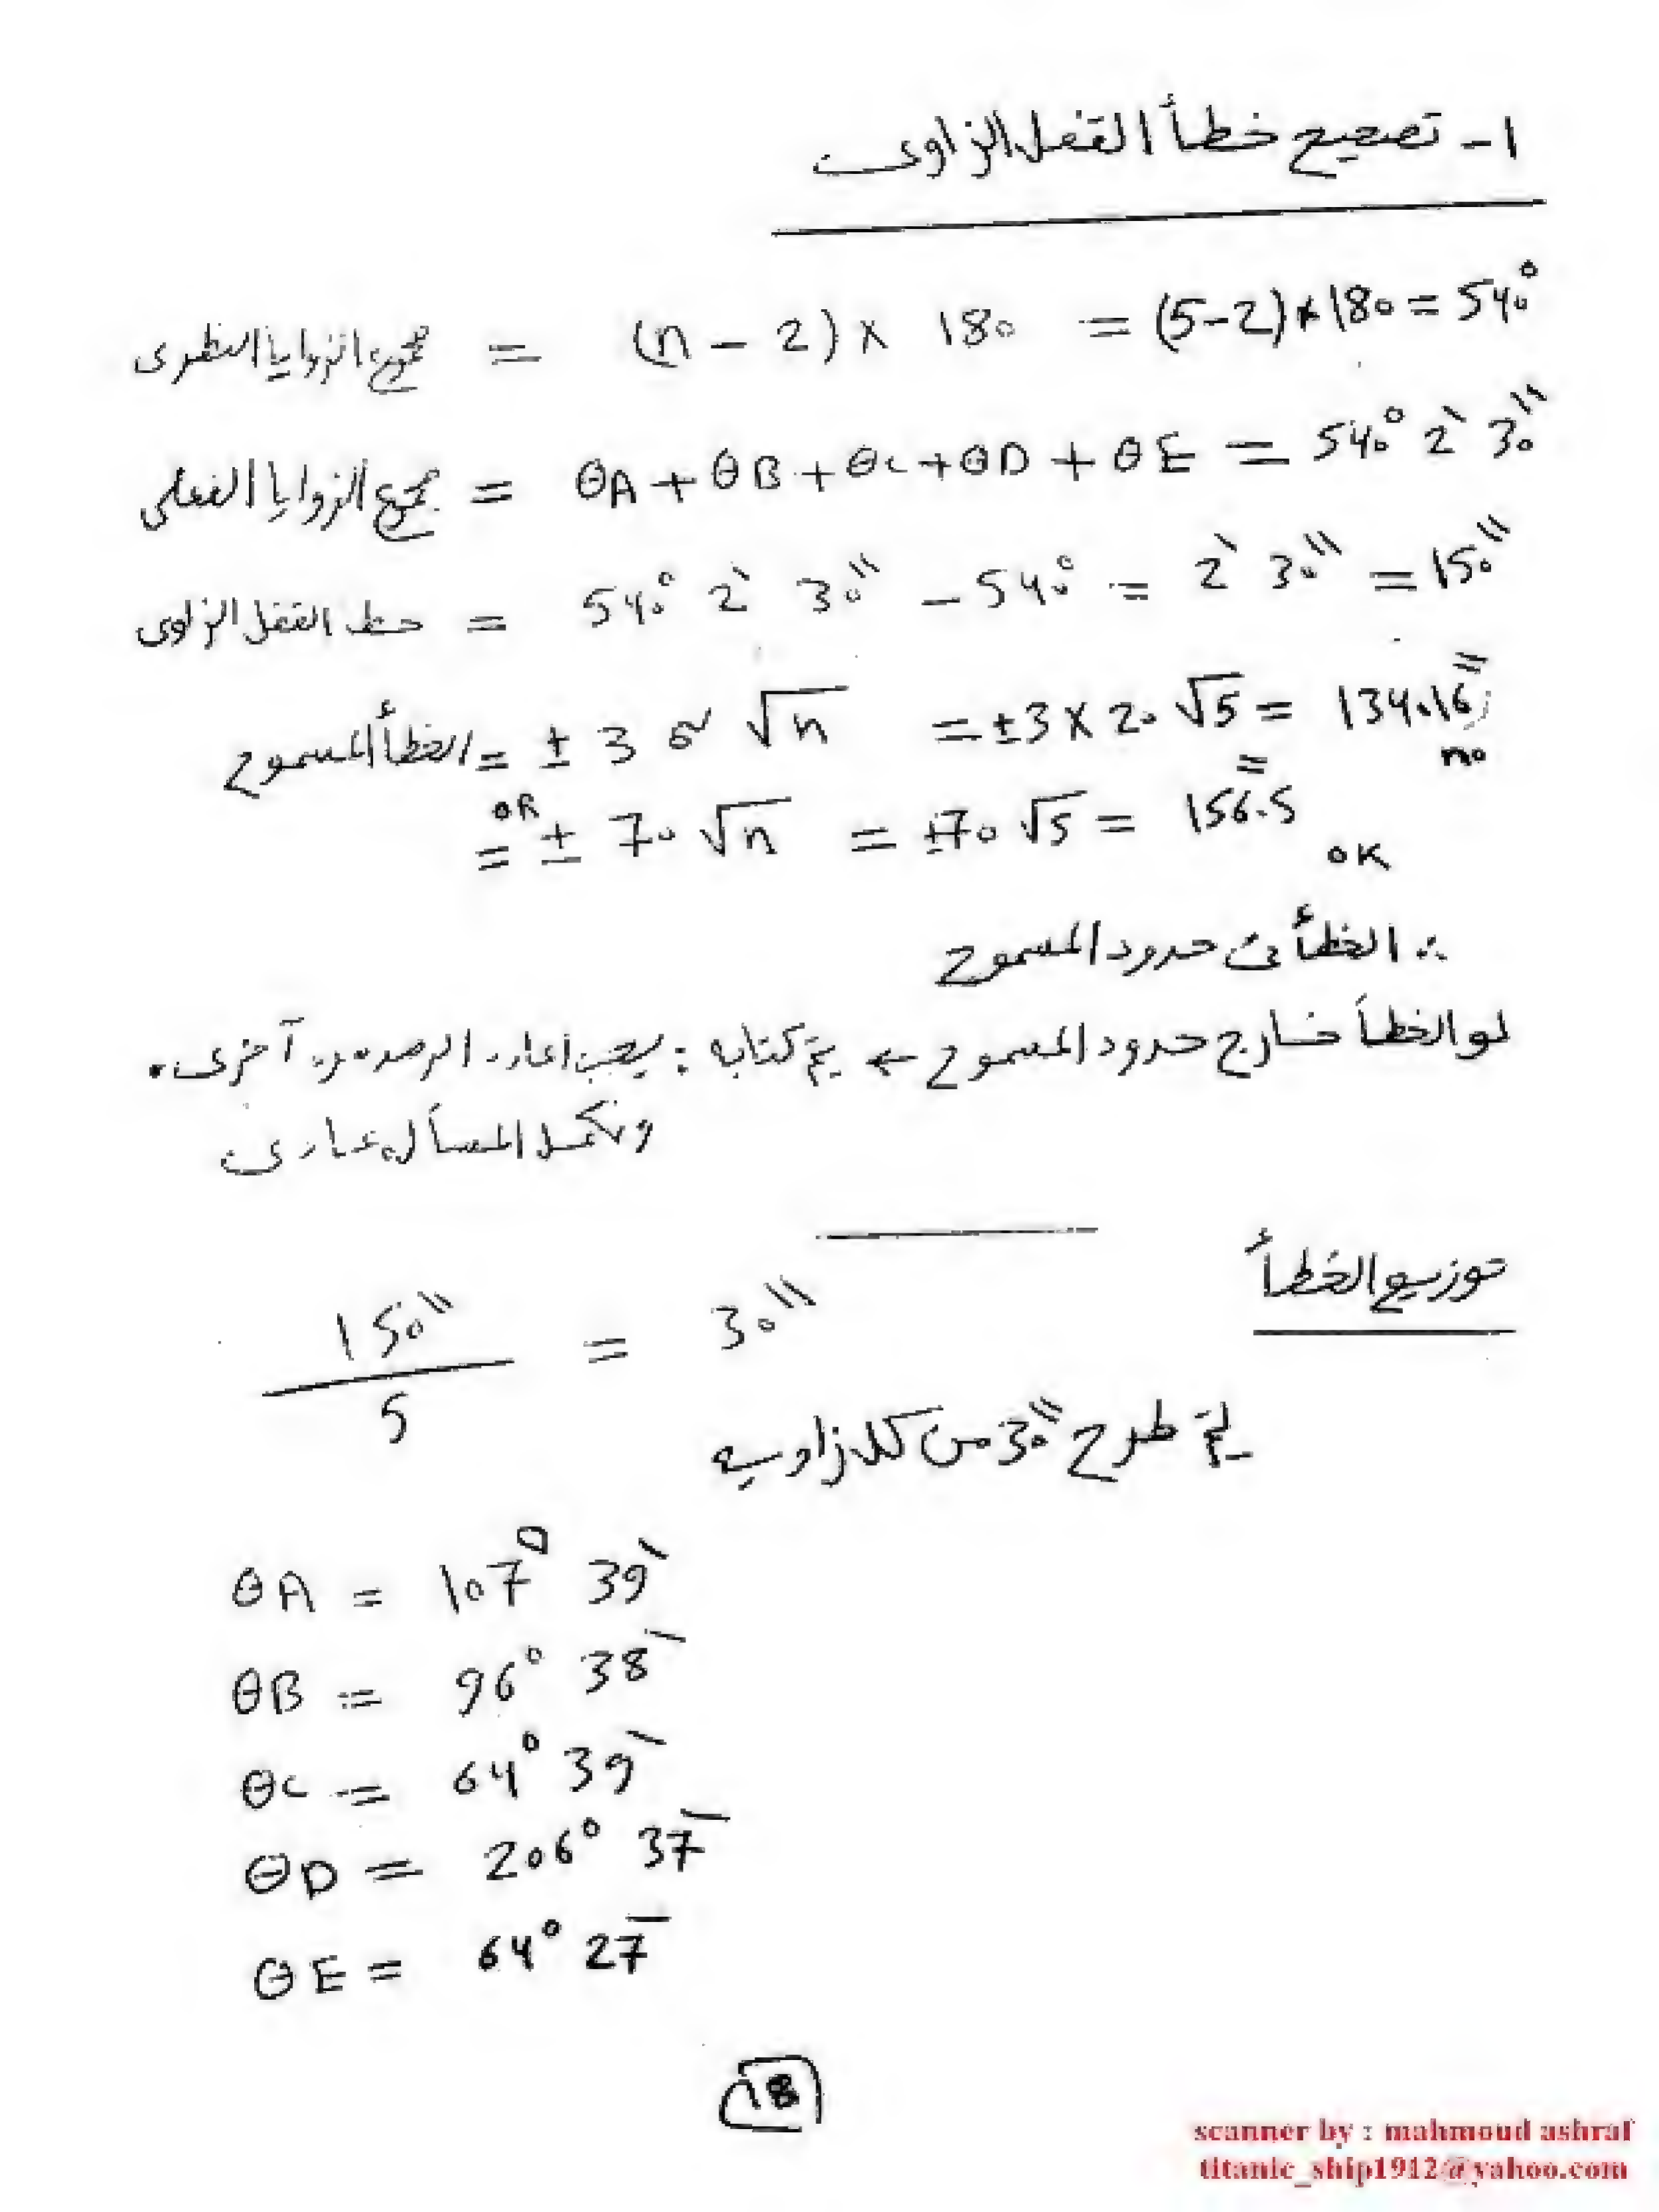 ١- تصحيح خطأ القفل الزاوى
مجموع الزوايا النظرى = (n - 2) × 180 = (5-2)*180 = 540°
مجموع الزوايا الفعلى = θA + θB + θC + θD + θE = 540° 2' 30"
خطـ القفل الزاوى = 540° 2' 30" - 540° = 2' 30" = 150"
الخطأ المسموح = ± 3 σ √n = ±3 × 20 √5 = 134.16" no
OR = ± 70 √n = ±70 √5 = 156.5" OK
∴ الخطأ فى حدود المسموح
لو الخطأ خارج حدود المسموح ← يتم كتابه : يجب اعادة الرصد مرة آخرى.
ونكمل المسألة عادى
توزيع الخطأ
150" / 5 = 30"
يتم طرح 30" من كل زاويه
θA = 107° 39'
θB = 96° 38'
θC = 64° 39'
θD = 206° 37'
θE = 64° 27'
18
scanner by : mahmoud ashraf
titanic_ship1912@yahoo.com